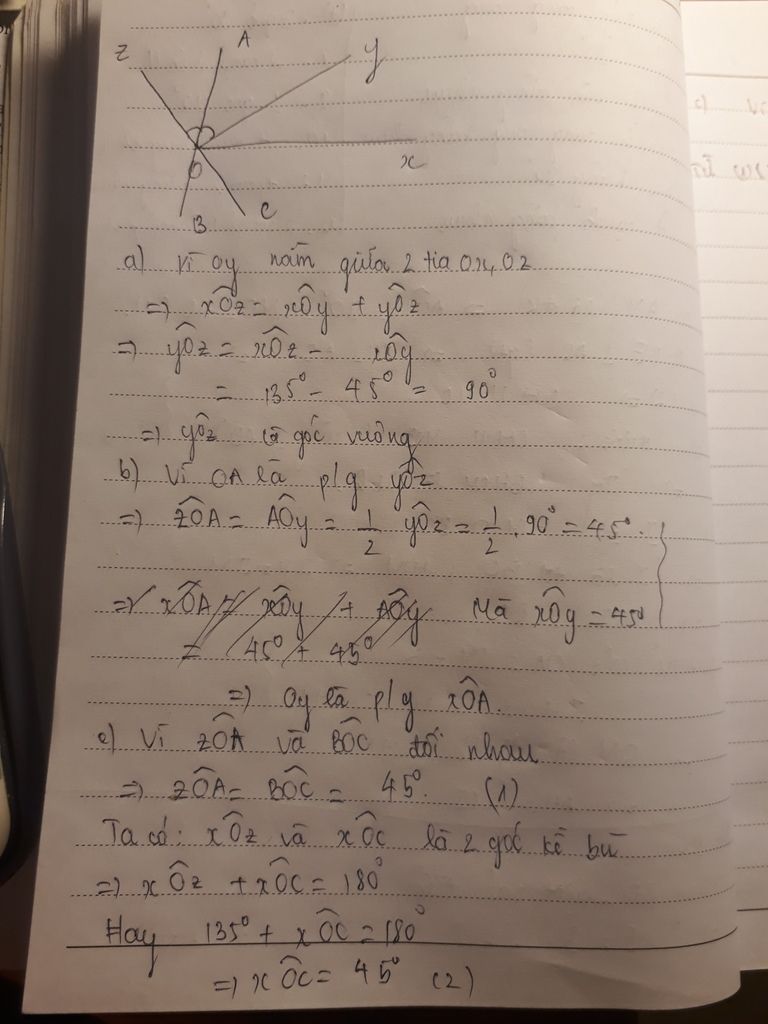 z A y
O x
B C
a) Vì Oy nằm giữa 2 tia Ox, Oz
=> xÔz = xÔy + yÔz
=> yÔz = xÔz - xÔy
= 135° - 45° = 90°
=> yÔz là góc vuông
b) Vì OA là p/g yÔz
=> zÔA = AÔy = 1/2 yÔz = 1/2 . 90° = 45°.
=> xÔA = xÔy + AÔy Mà xÔy = 45°
= 45° + 45°
=> Oy là p/g xÔA.
c) Vì zÔA và BÔC đối nhau
=> zÔA = BÔC = 45°. (1)
Ta có: xÔz và xÔc là 2 góc kề bù
=> xÔz + xÔC = 180°
Hay 135° + xÔC = 180°
=> xÔC = 45° (2)